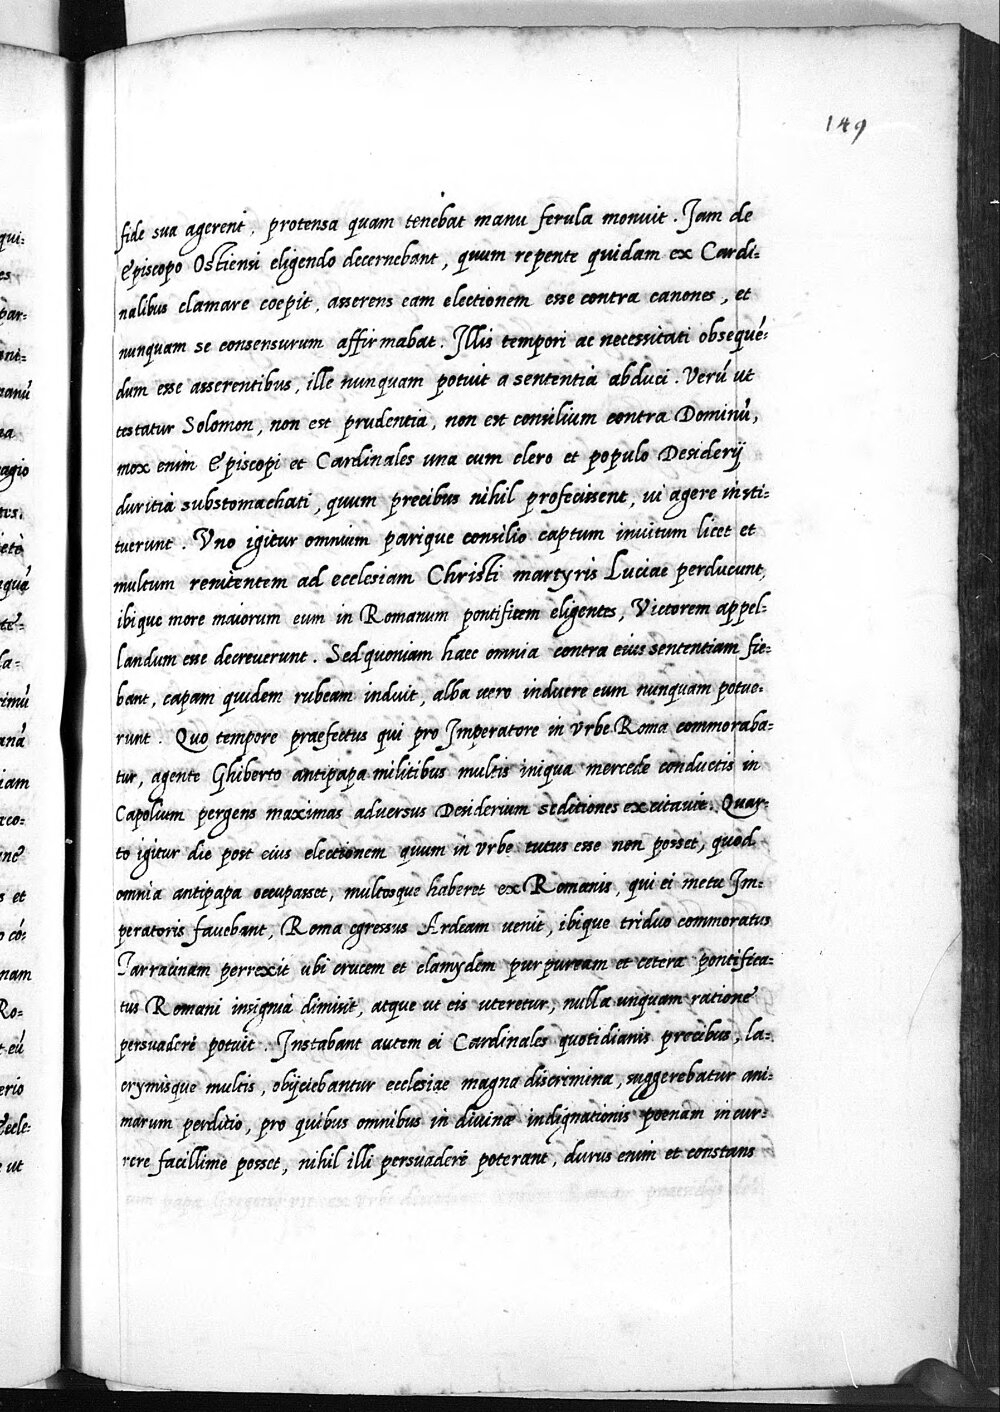 149
fide sua agerent, protensa quam tenebat manu ferula monuit. Jam de
Episcopo Ostiensi eligendo decernebant, quum repente quidam ex Cardi=
nalibus clamare coepit, asserens eam electionem esse contra canones, et
nunquam se consensurum affirmabat. Illis tempori ac necessitati obsequé=
dum esse asserentibus, ille nunquam potuit a sententia abduci. Verú ut
testatur Solomon, non est prudentia, non est consilium contra Dominú,
mox enim Episcopi et Cardinales una cum clero et populo Desiderij
duritia substomachati, quum precibus nihil profecissent, vi agere insti=
tuerunt. Uno igitur omnium parique consilio captum invitum licet et
multum renitentem ad ecclesiam Christi martyris Luciae perducunt,
ibique more maiorum eum in Romanum pontificem eligentes, Victorem appel=
landum esse decreverunt. Sed quoniam haec omnia contra eius sententiam fie=
bant, capam quidem rubeam induit, alba vero induere eum nunquam potue=
runt. Quo tempore praefectus qui pro Imperatore in urbe Roma commoraba=
tur, agente Ghiberto antipapa militibus multis iniqua mercede conductis in
Capolium pergens maximas adversus Desiderium seditiones excitavit. Quar=
to igitur die post eius electionem quum in urbe tutus esse non posset, quod
omnia antipapa occupasset, multosque haberet ex Romanis, qui ei metu Im=
peratoris favebant, Roma egressus Ardeam venit, ibique triduo commoratus
Tarracinam perrexit ubi crucem et clamydem purpuream et cetera pontifica=
tus Romani insignia dimisit, atque ut eis uteretur, nulla unquam ratione
persuaderi potuit. Instabant autem ei Cardinales quotidianis precibus, la=
crymisque multis, obijciebantur ecclesiae magna discrimina, suggerebatur ani=
marum perditio, pro quibus omnibus in divinae indignationis poenam incur=
rere facillime posset, nihil illi persuadere poterant, durus enim et constans